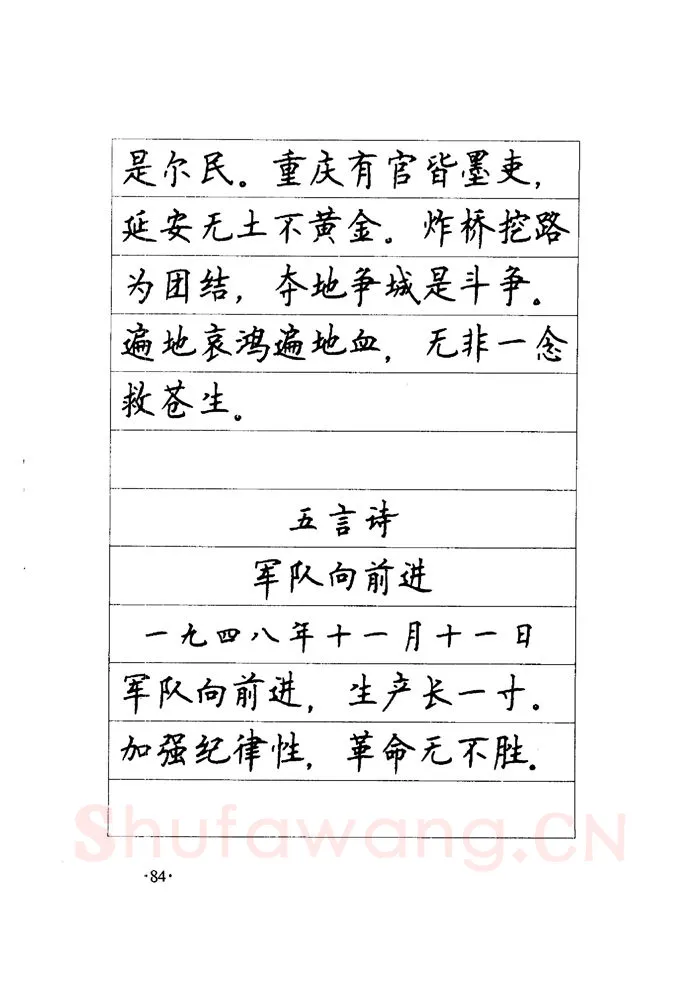 是尔民。重庆有官皆墨吏，
延安无土不黄金。炸桥挖路
为团结，夺地争城是斗争。
遍地哀鸿遍地血，无非一念
救苍生。
五言诗
军队向前进
一九四八年十一月十一日
军队向前进，生产长一寸。
加强纪律性，革命无不胜。
Shufawang.CN
·84·